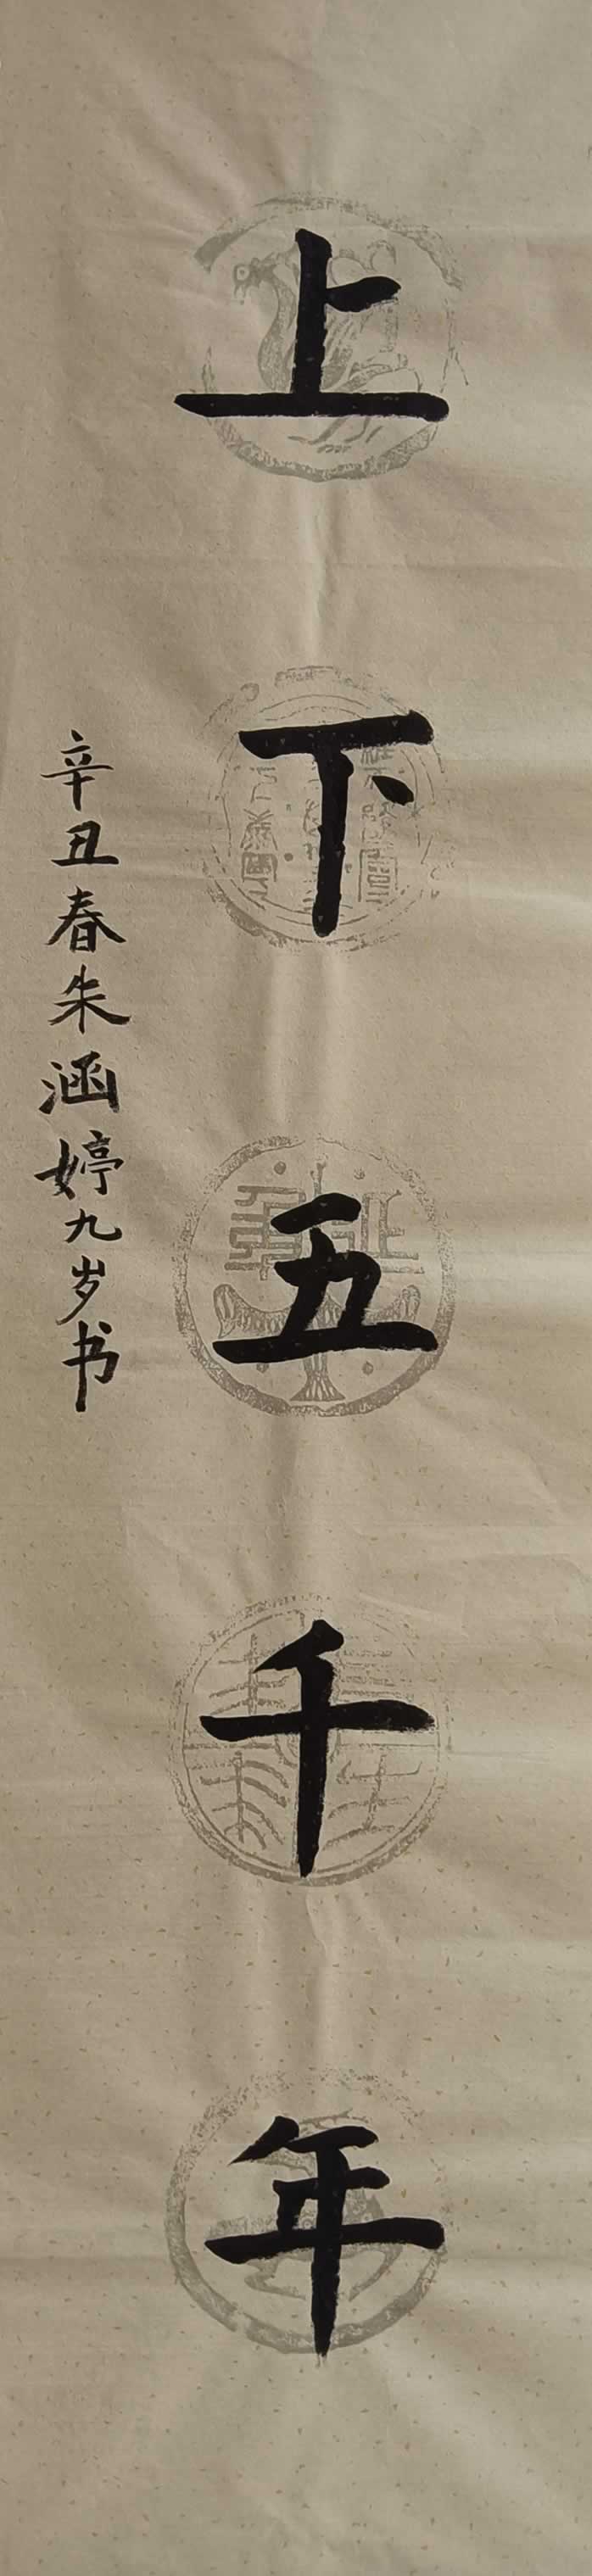 上下五千年
辛丑春朱涵婷九岁书